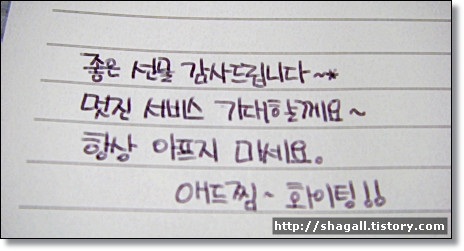 좋은 선물 감사드립니다~*
멋진 서비스 기대할께요~
항상 아프지 마세요.
애드찜~ 화이팅!!
http://shagall.tistory.com